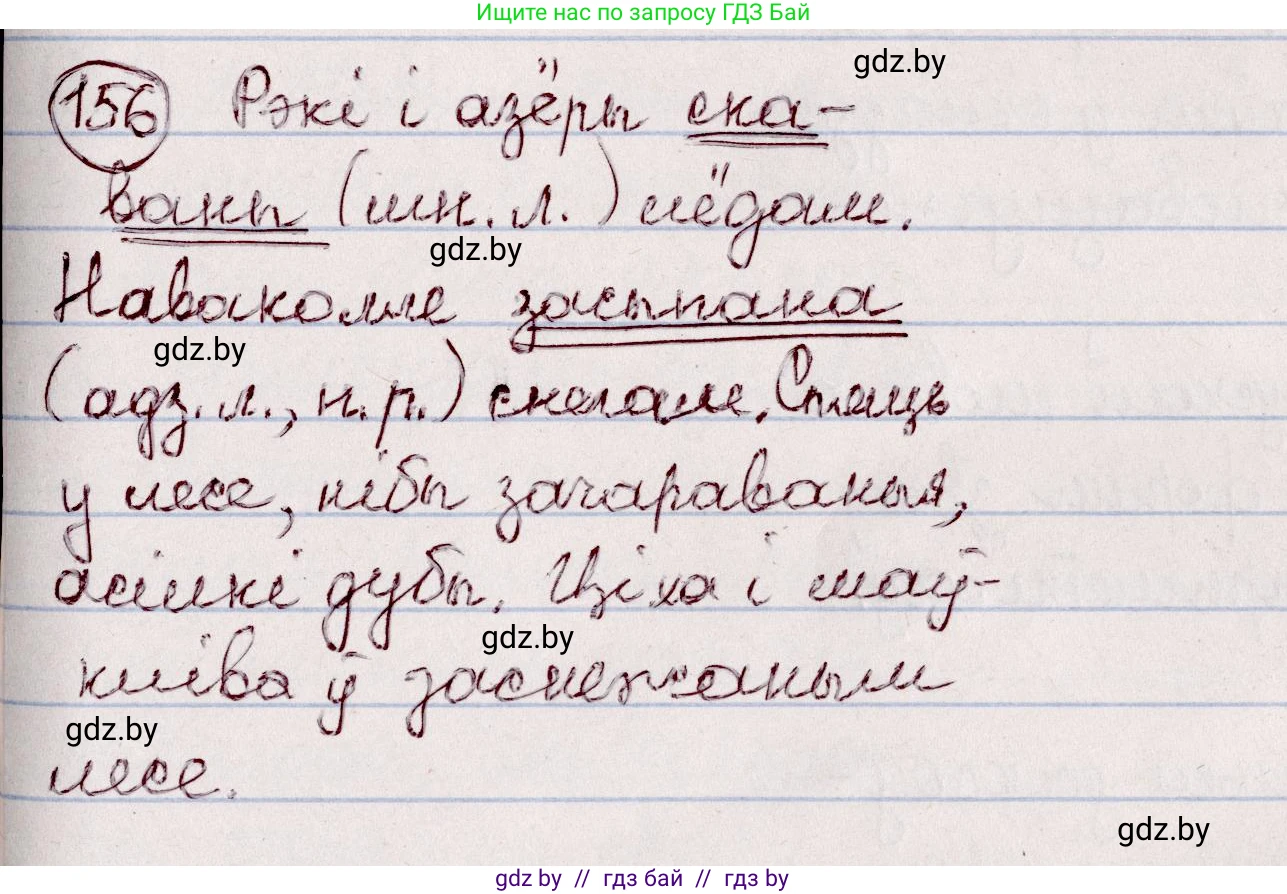 Ищите нас по запросу ГДЗ Бай
gdz.by
156 Рэкі і азёры ска-
ваны (мн. л.) лёдам.
gdz.by
Наваколле засыпана
gdz.by
(адз. л., н. р.) снегам. Спяць
у лесе, нібы зачараваныя,
асілкі дубы. Ціха і маў-
gdz.by
кліва ў заснежаным
gdz.by
лесе.
gdz.by
gdz by // гдз бай // gdz by